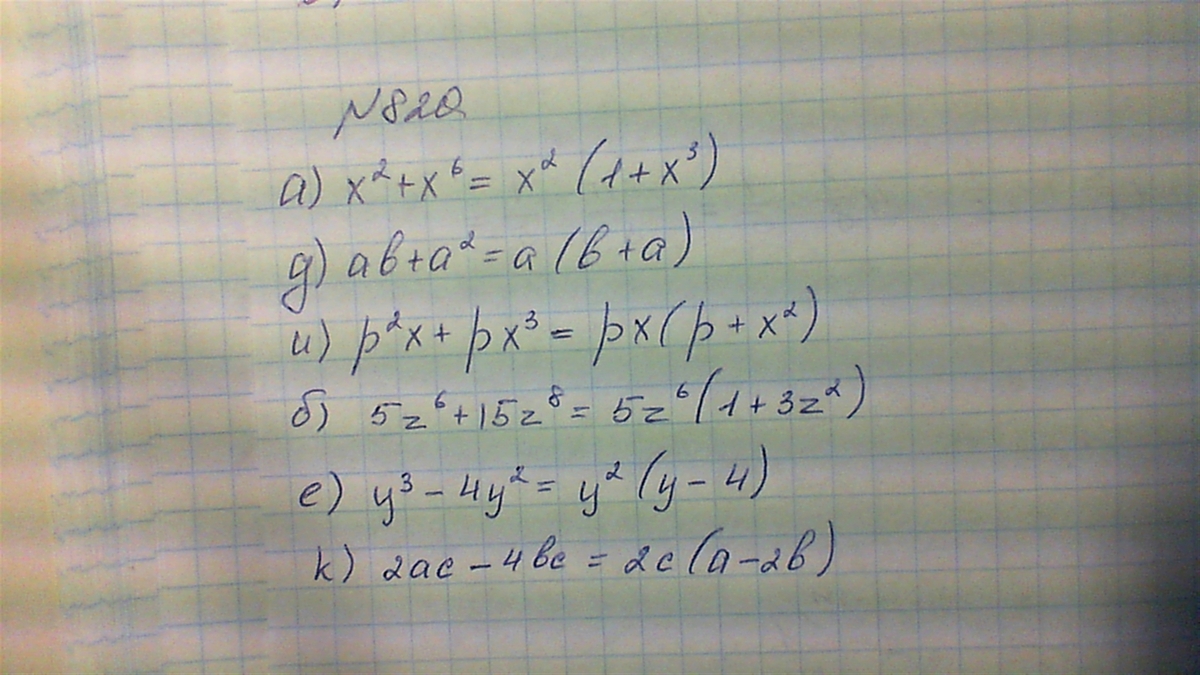 №820
а) x²+x⁶= x² (1+x³)
д) ab+a²=a (b+a)
и) p²x+px³= px(p+x²)
б) 5z⁶+15z⁸= 5z⁶(1+3z²)
е) y³-4y²= y² (y-4)
к) 2ac-4bc = 2c(a-2b)